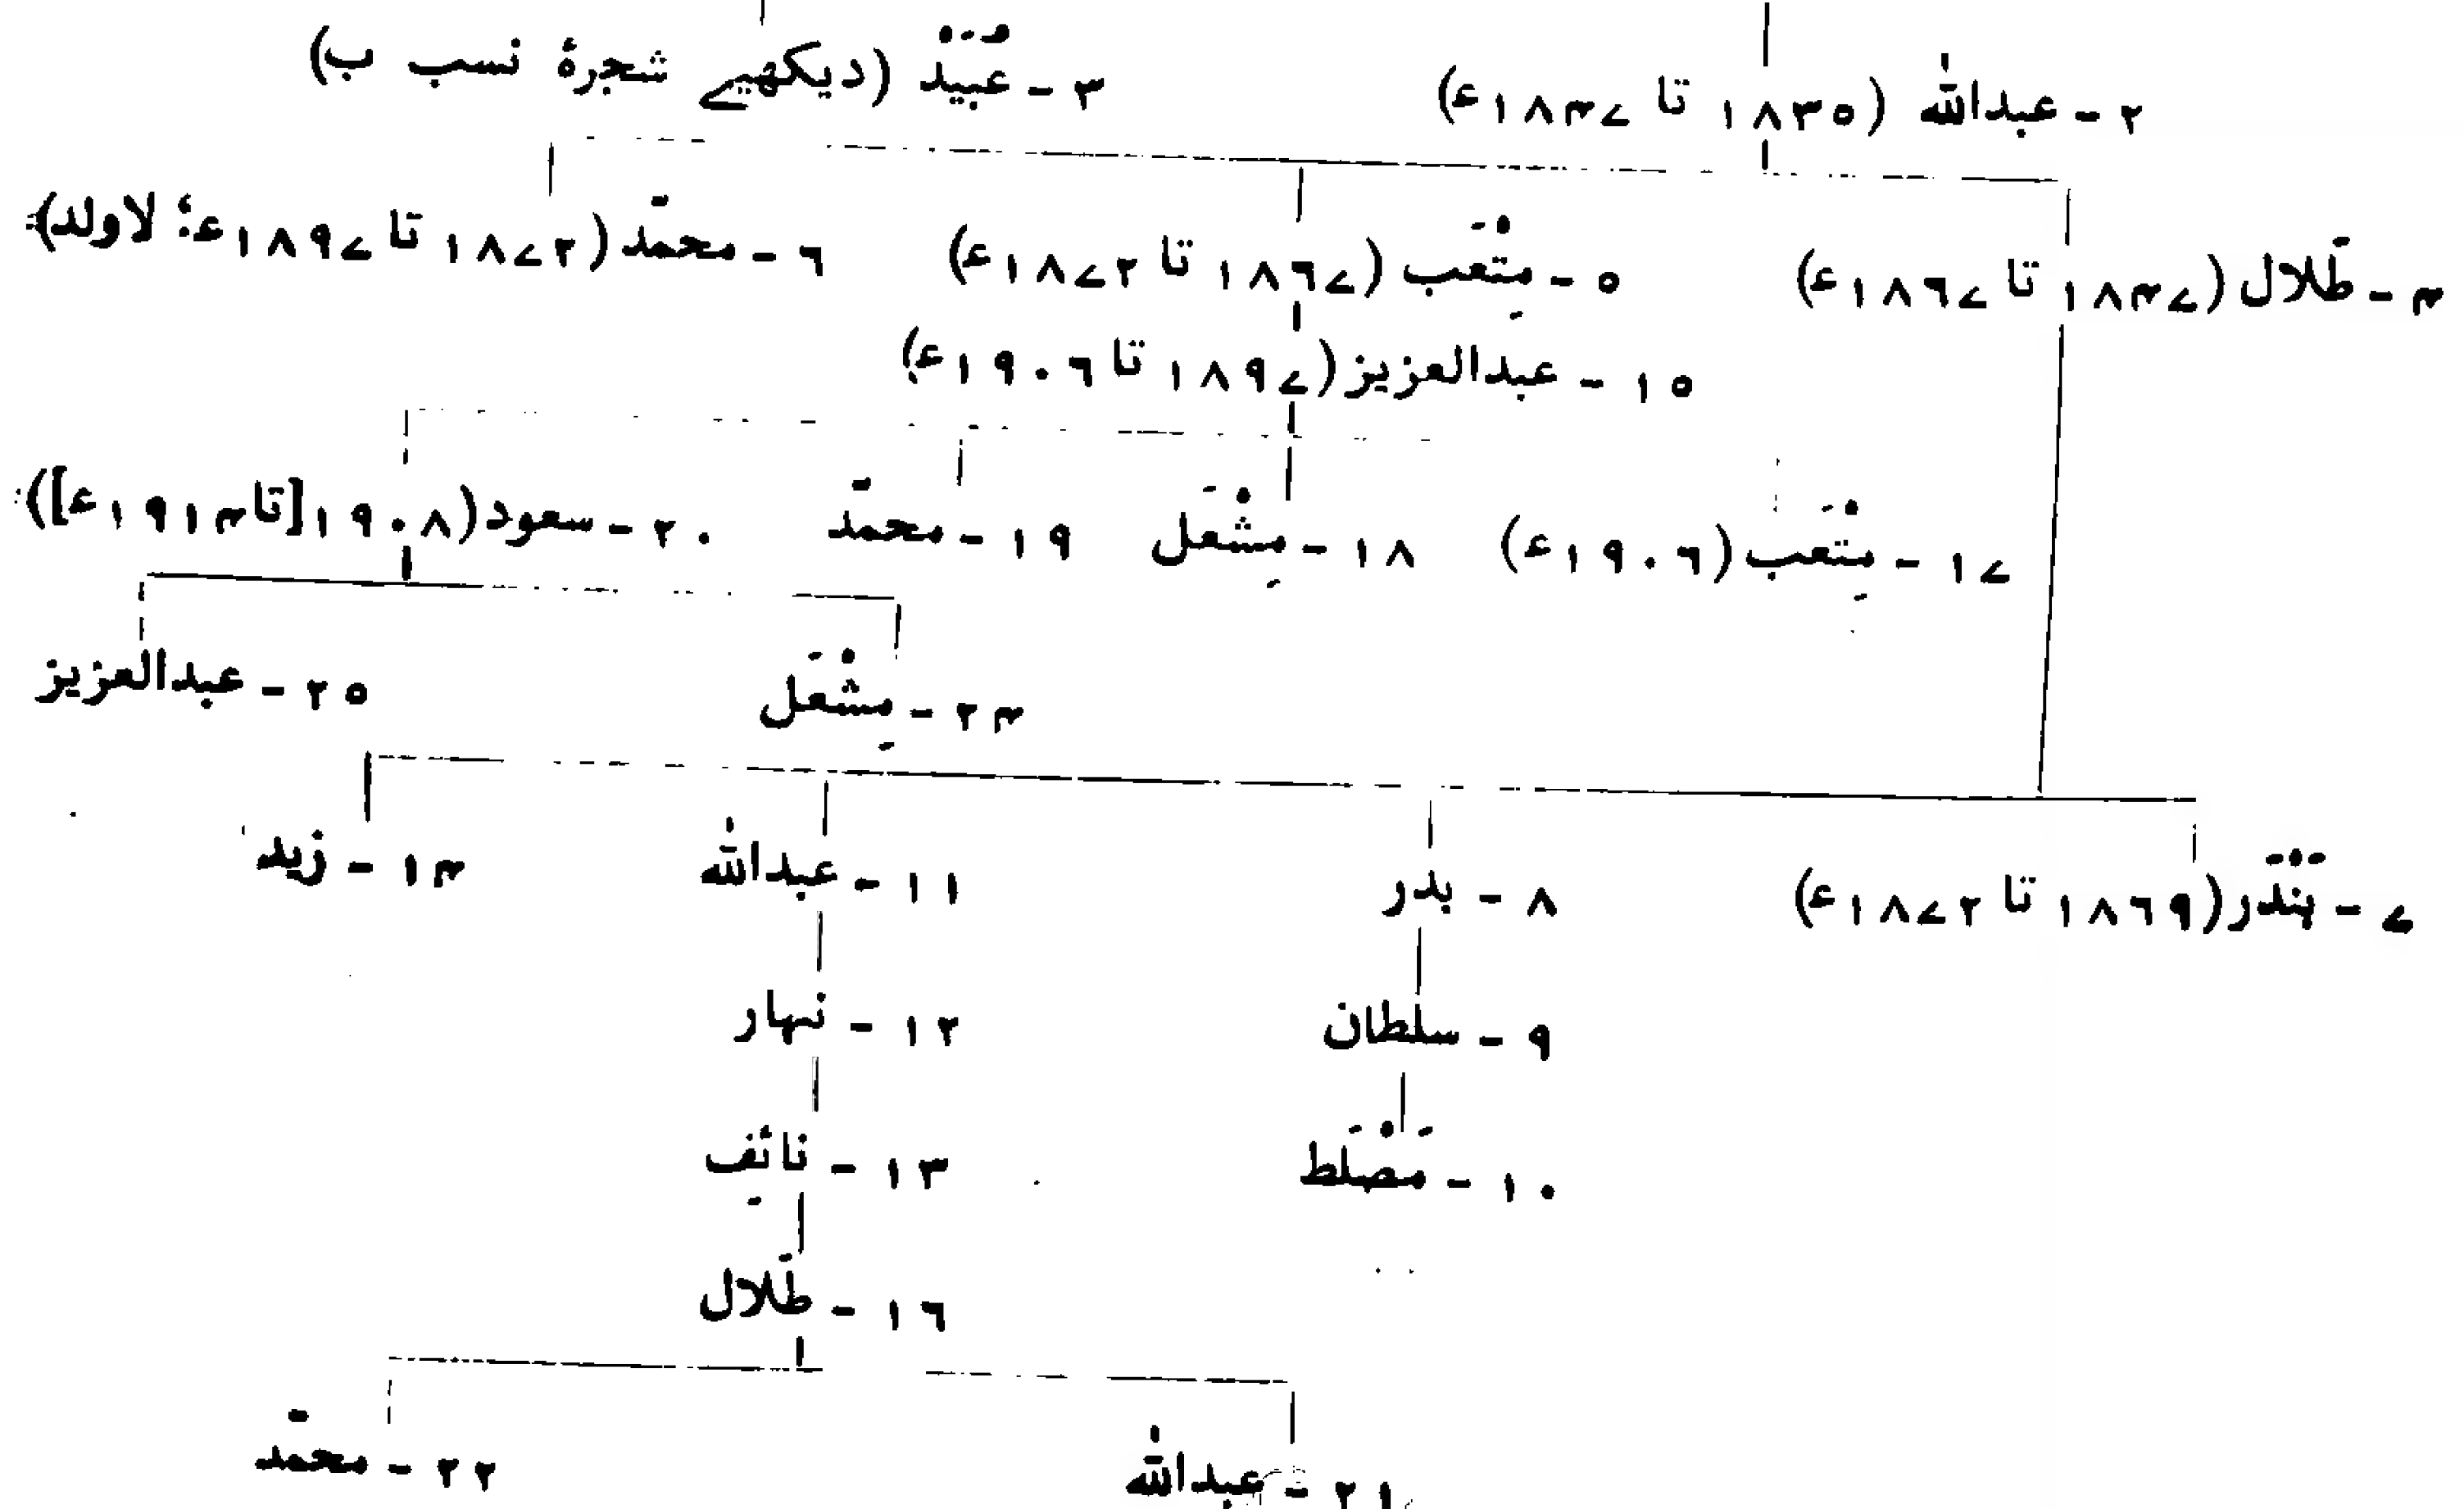 ۲ - عبداللہ (۱۸۳۵ تا ۱۸۴۷ء)
۳ - عُبَیْد (دیکھیے شجرۂ نسب ب)
۴ - طَلال (۱۸۴۷ تا ۱۸۶۷ء)
۵ - مِتْعَب (۱۸۶۷ تا ۱۸۷۲ء)
۶ - محمّد (۱۸۷۲ تا ۱۸۹۷ء؛ لاولد)
۱۵ - عبدالعزیز (۱۸۹۷ تا ۱۹۰۶ء)
۱۷ - مِتْعَب (۱۹۰۶ء)
۱۸ - مِشْعَل
۱۹ - محمّد
۲۰ - سعود (۱۹۰۸ [تا ۱۹۱۴ء])
۲۴ - مِشْعَل
۲۵ - عبدالعزیز
۷ - بَنْدَر (۱۸۶۹ تا ۱۸۷۲ء)
۸ - بدر
۱۱ - عبداللہ
۱۴ - زید
۹ - سلطان
۱۲ - نہار
۱۰ - مَصْلَط
۱۳ - نائِف
۱۶ - طَلال
۲۱ - عبداللہ
۲۲ - محمّد